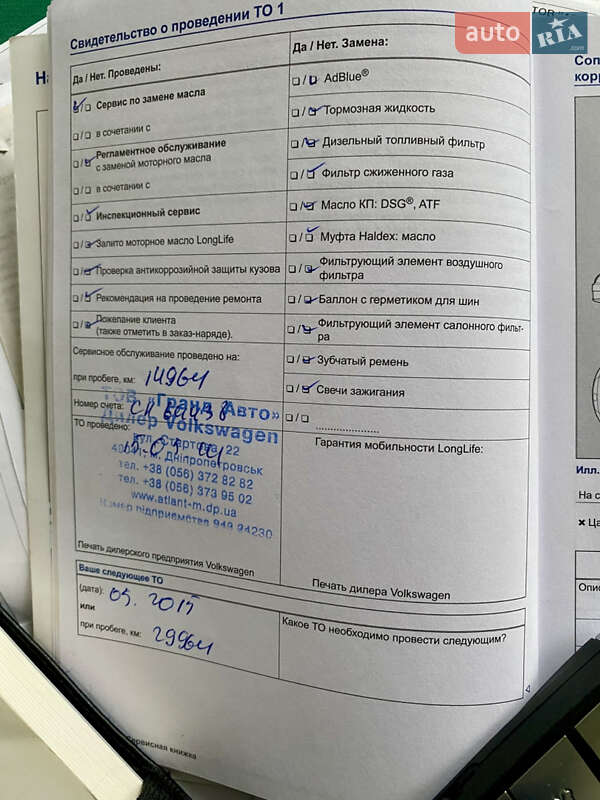 Свидетельство о проведении ТО 1
TOB
auto RIA
.com
Да / Нет. Проведены:
Да / Нет. Замена:
Сервис по замене масла
в сочетании с
Регламентное обслуживание
с заменой моторного масла
в сочетании с
Инспекционный сервис
Залито моторное масло LongLife
Проверка антикоррозийной защиты кузова
Рекомендация на проведение ремонта
Пожелание клиента
(также отметить в заказ-наряде).
AdBlue®
Тормозная жидкость
Дизельный топливный фильтр
Фильтр сжиженного газа
Масло КП: DSG®, ATF
Муфта Haldex: масло
Фильтрующий элемент воздушного
фильтра
Баллон с герметиком для шин
Фильтрующий элемент салонного фильт-
ра
Зубчатый ремень
Свечи зажигания
Сервисное обслуживание проведено на:
при пробеге, км: 14964
Номер счета:
ТО проведено:
ТОВ «Гранд Авто»
Дилер Volkswagen
вул. Стартова, 22
м. Дніпропетровськ
тел. +38 (056) 372 82 82
тел. +38 (056) 373 95 02
www.atlant-m.dp.ua
Номер підприємства
Гарантия мобильности LongLife:
Печать дилерского предприятия Volkswagen
Печать дилера Volkswagen
Ваше следующее ТО
(дата): 05. 2015
или
при пробеге, км: 29964
Какое ТО необходимо провести следующим?
4
Сервисная книжка
На
Соп
корр
Илл.
На с
Ца
Опис